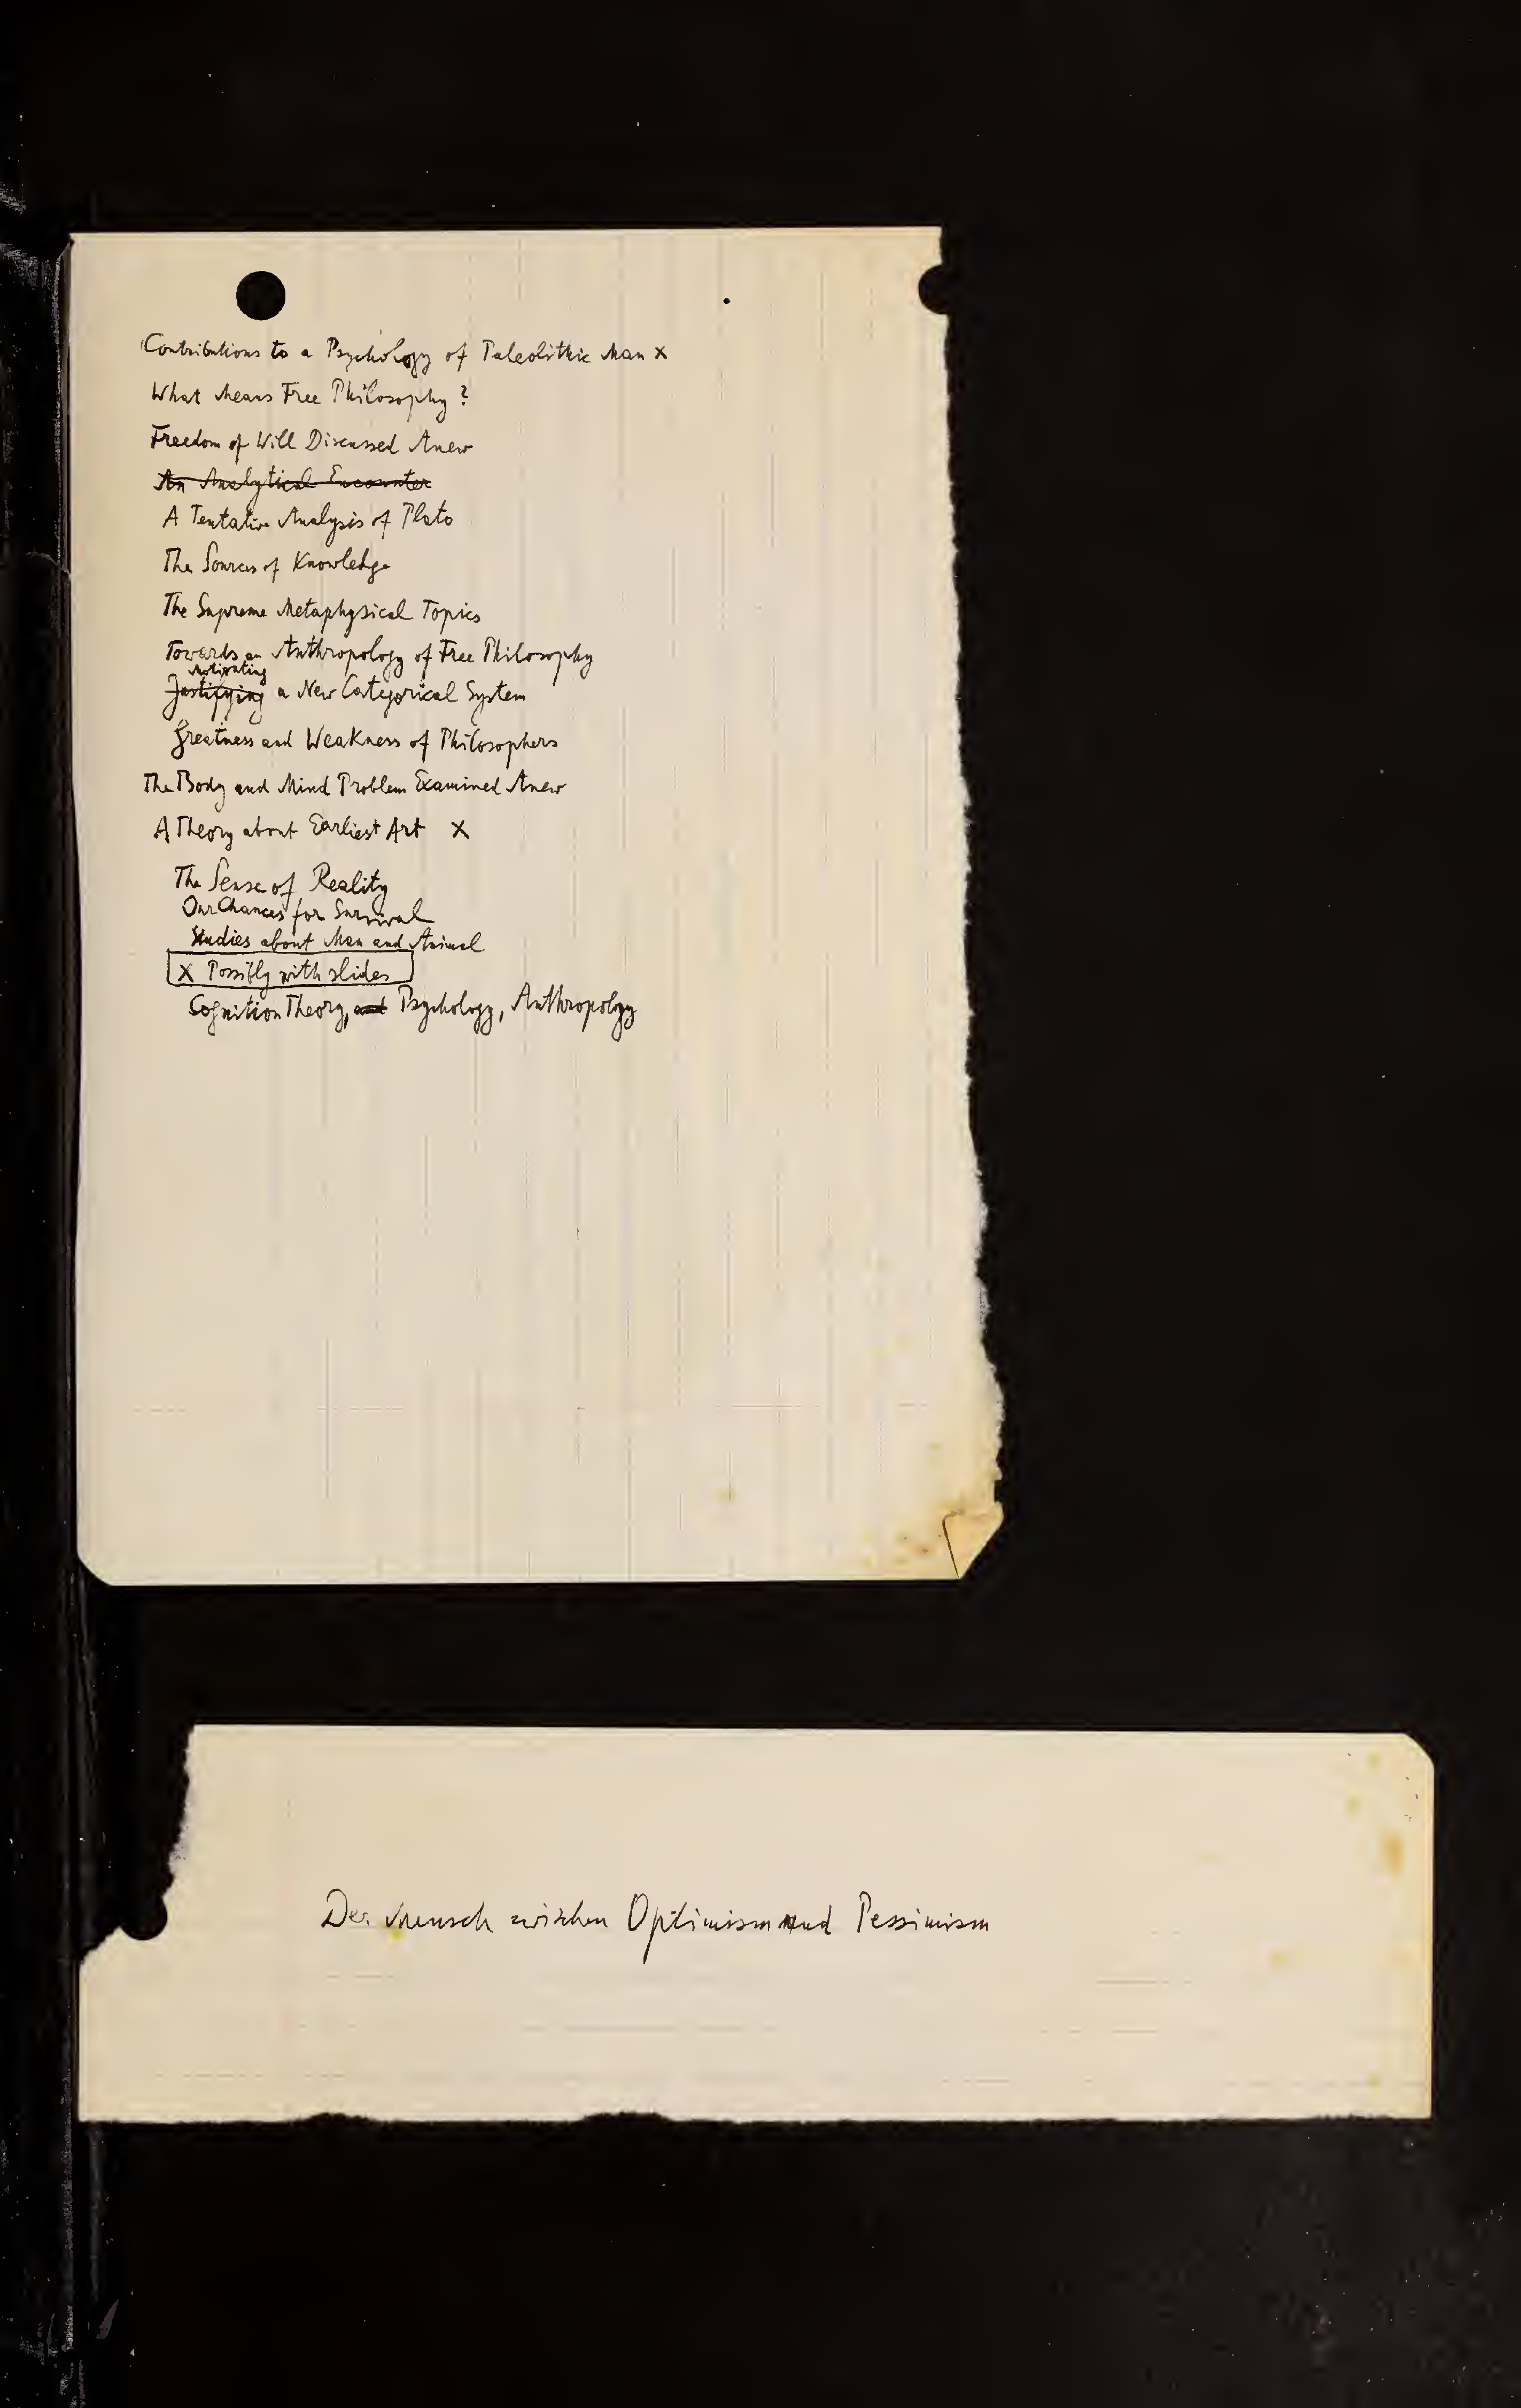 Contributions to a Psychology of Paleolithic Man x
What Means Free Philosophy?
Freedom of Will Discussed Anew
An Analytical Encounter
A Tentative Analysis of Plato
The Sources of Knowledge
The Supreme Metaphysical Topics
Towards an Anthropology of Free Philosophy
Motivating
Justifying a New Categorical System
Greatness and Weakness of Philosophers
The Body and Mind Problem Examined Anew
A Theory about Earliest Art X
The Sense of Reality
Our Chances for Survival
Studies about Man and Animal
X Possibly with slides
Cognition Theory, and Psychology, Anthropology
Der Mensch zwischen Optimism und Pessimism